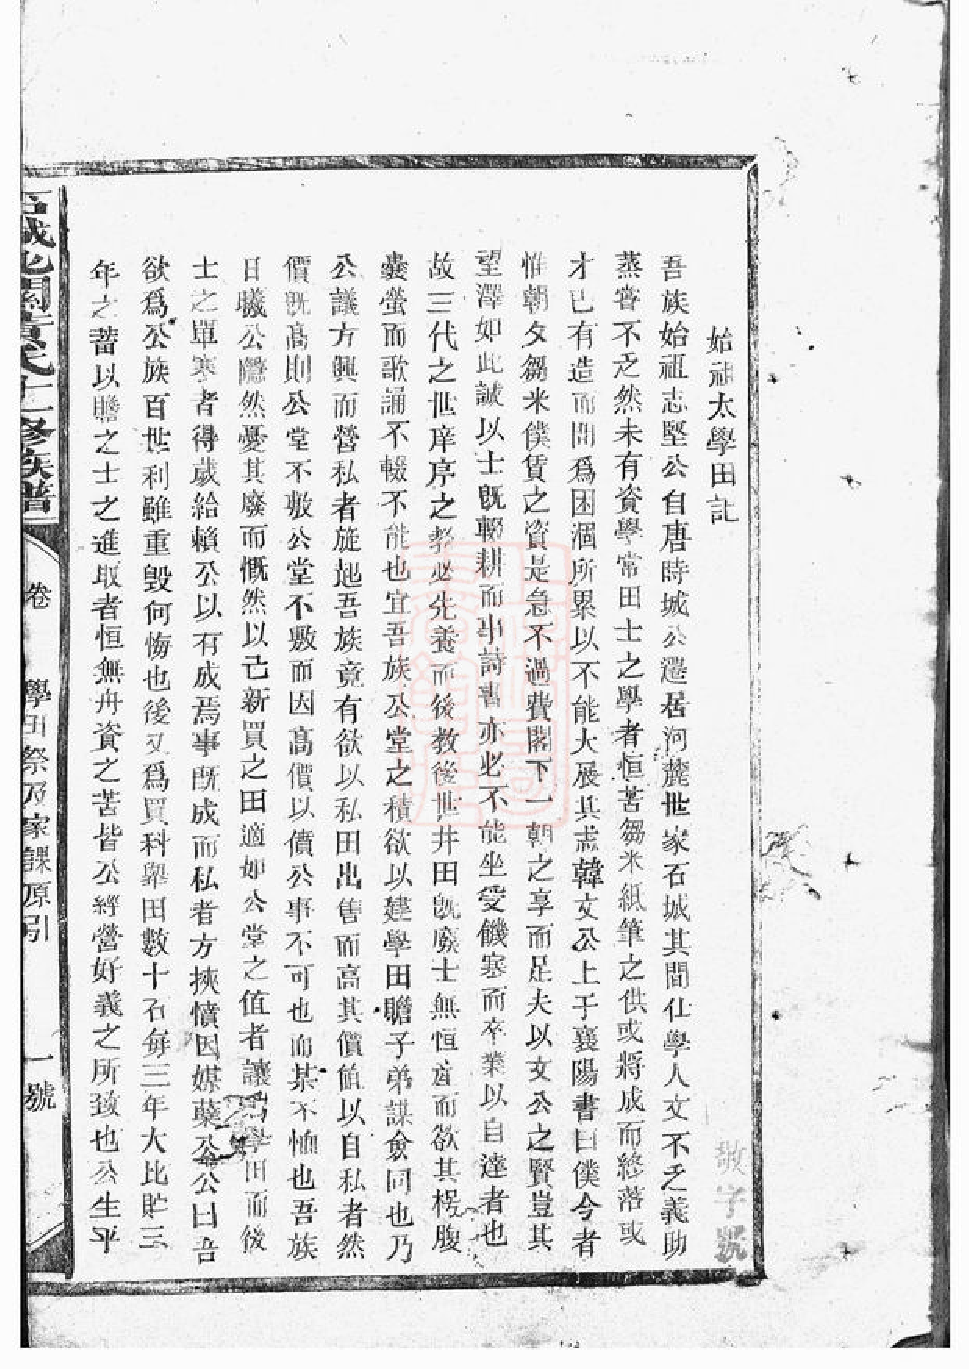 始祖太學田記
吾族始祖志堅公自唐時城公遷居河麓世家石城其間仕學人文不乏義助
蒸嘗不乏然未有資學常田士之學者恒苦芻米紙筆之供或將成而終落或
才已有造而閒爲困涸所累以不能大展其志韓文公上于襄陽書曰僕今者
惟朝夕芻米僕賃之資是急不過費閣下一朝之享而足夫以文公之賢豈其
望澤如此誠以士既輟耕而事詩書亦必不能坐受饑寒而卒業以自達者也
故三代之世庠序之教必先養而後教後世井田既廢士無恒產而欲其楞腹
囊螢而歌誦不輟不能也宜吾族公堂之積欲以建學田贍子弟謀僉同也乃
公議方興而營私者旋起吾族竟有欲以私田出售而高其價值以自私者然
價既高則公堂不敷公堂不敷而因高價以價公事不可也而某不恤也吾族
日曦公隱然憂其廢而慨然以己新買之田適如公堂之值者讓爲學田而後
士之單寒者得歲給賴公以有成焉事既成而私者方挾憤因媒蘖公公曰吾
欲爲公族百世利雖重毀何悔也後又爲買科舉田數十石每三年大比貯三
年之蓄以贍之士之進取者恒無舟資之苦皆公經營好義之所致也公生平
石城北關黃氏十二修族譜
卷
學田祭及家課原引
一號
敬字號